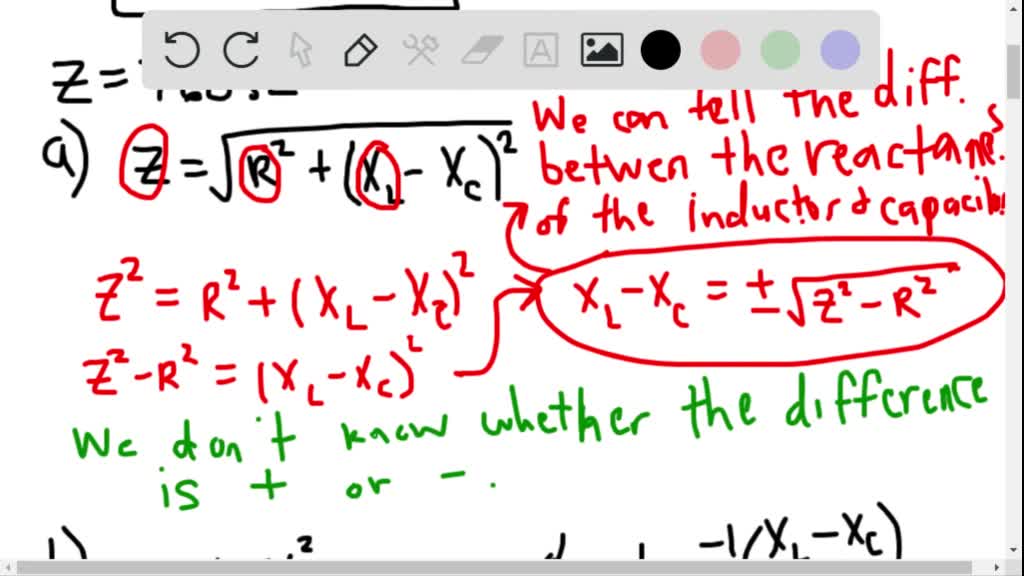 Z =
a) Z = √R² + (X_L - X_C)²
We can tell the diff.
betwen the reactances
of the inductor & capacitor
Z² = R² + (X_L - X_C)²
X_L - X_C = ± √Z² - R²
Z² - R² = (X_L - X_C)²
We don't know whether the difference
is + or - .
-1 (X_L - X_C)